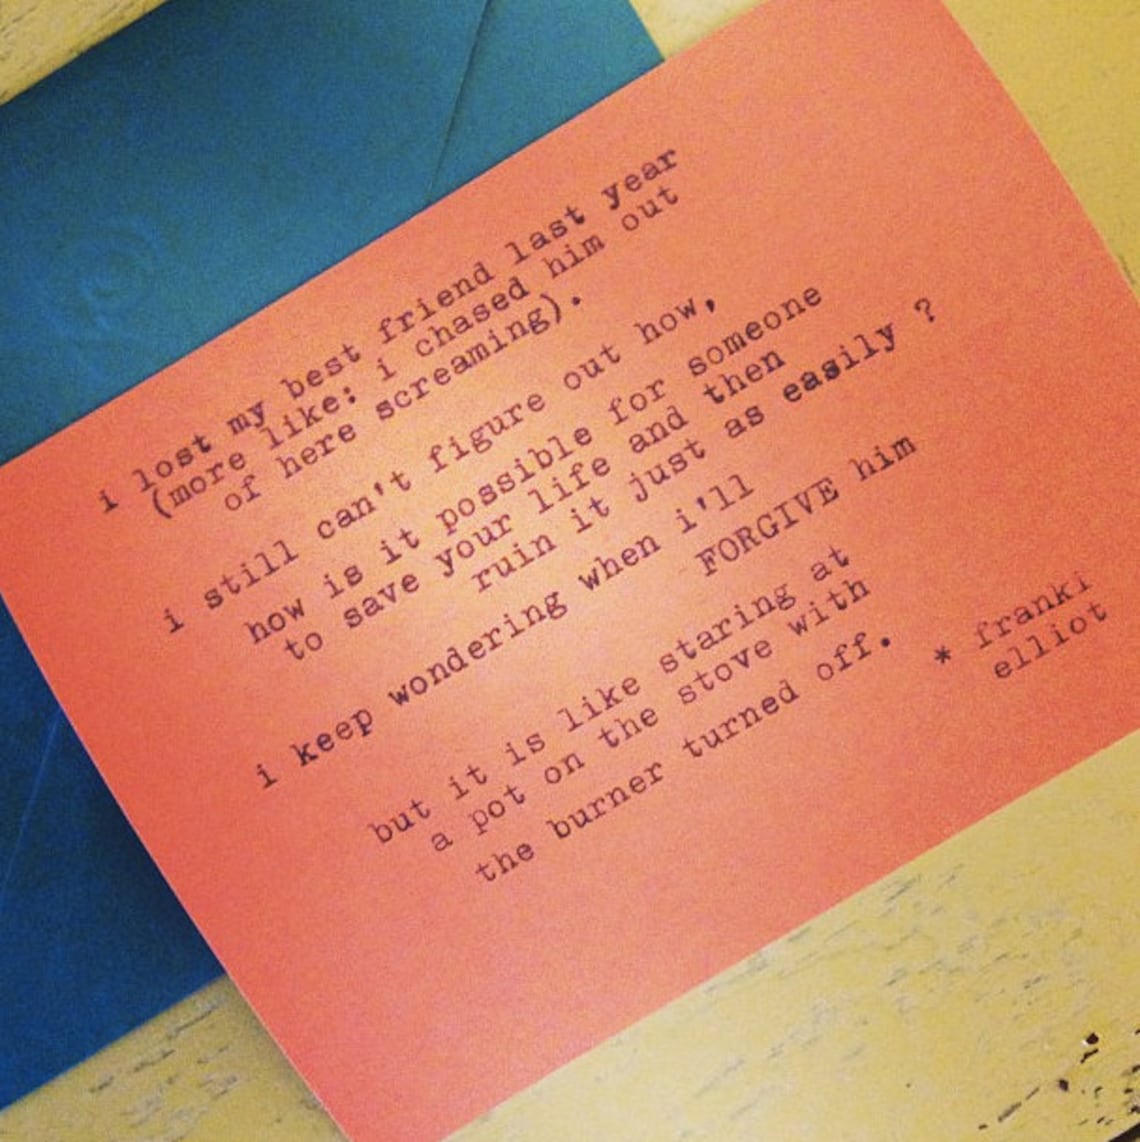 i lost my best friend last year
(more like: i chased him out
of here screaming).
i still can't figure out how,
how is it possible for someone
to save your life and then
ruin it just as easily ?
i keep wondering when i'll
FORGIVE him
but it is like staring at
a pot on the stove with
the burner turned off.
* franki
elliot